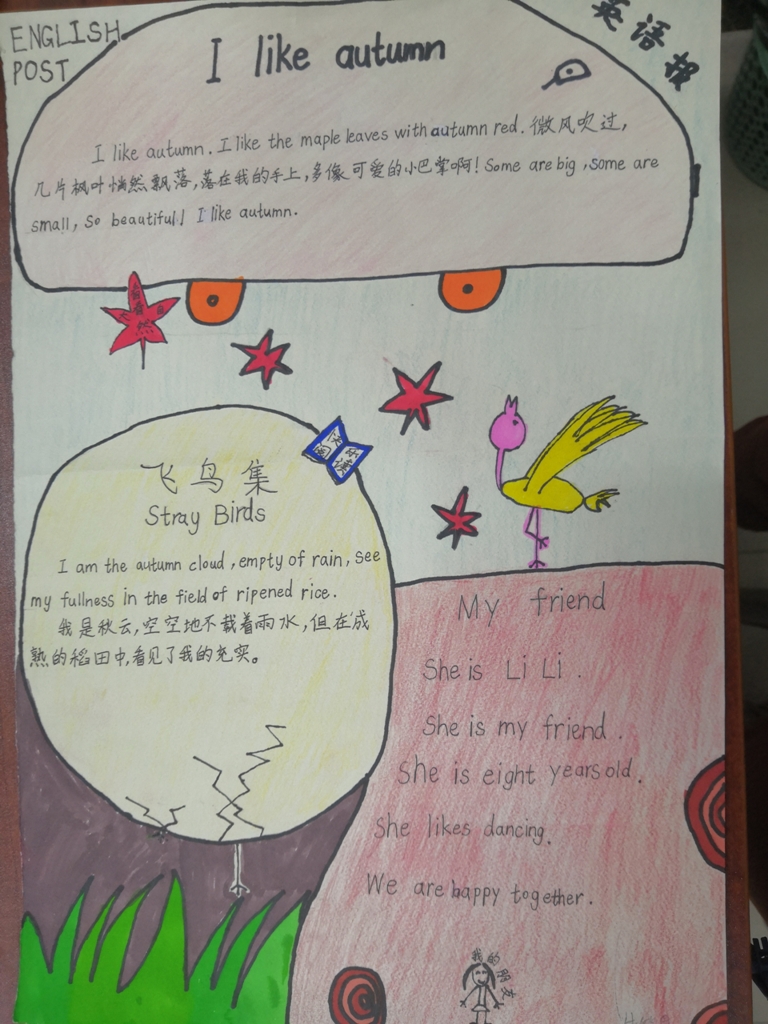 ENGLISH
POST
英语报
I like autumn
I like autumn. I like the maple leaves with autumn red. 微风吹过,
几片枫叶悄然飘落,落在我的手上,多像可爱的小巴掌啊! Some are big, some are
small, So beautiful! I like autumn.
飞鸟集
Stray Birds
I am the autumn cloud, empty of rain, see
my fullness in the field of ripened rice.
我是秋云,空空地不载着雨水,但在成
熟的稻田中,看见了我的充实。
My friend
She is Li Li.
She is my friend.
She is eight years old.
She likes dancing.
We are happy together.
我的朋友